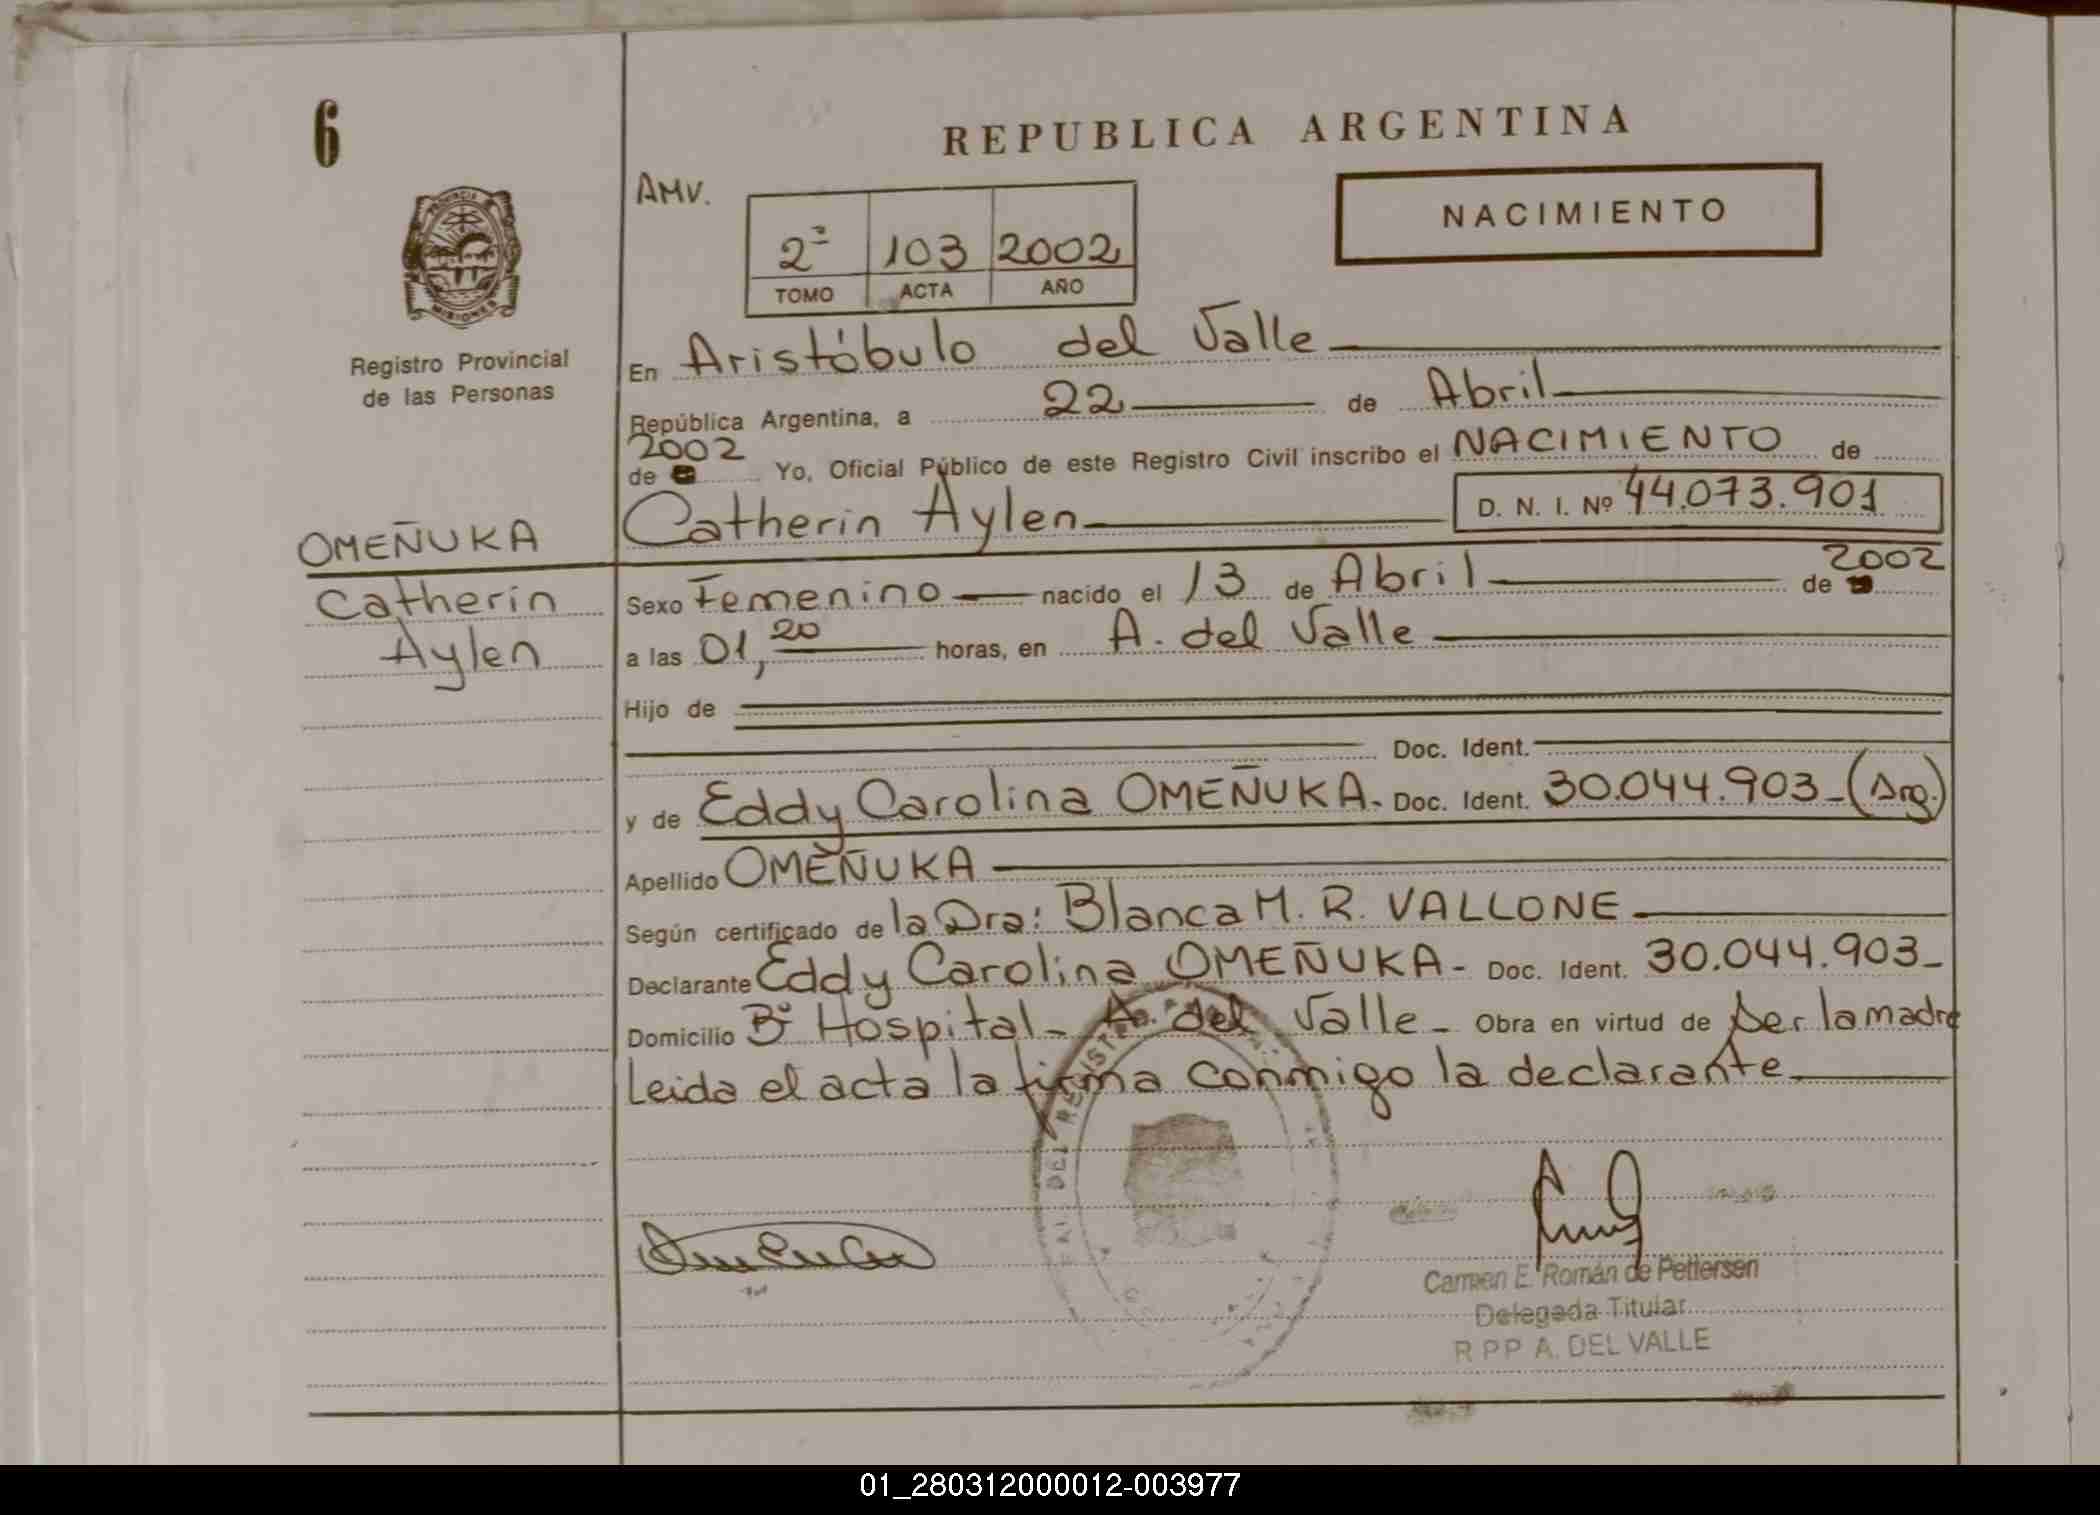 6
REPUBLICA ARGENTINA
AMV.
NACIMIENTO
2º 103 2002
TOMO ACTA AÑO
PROVINCIA DE
MISIONES
Registro Provincial
de las Personas
En Aristóbulo del Valle
República Argentina, a 22 de Abril
2002
de Yo, Oficial Público de este Registro Civil inscribo el NACIMIENTO de
Catherin Aylen D. N. I. Nº 44.073.901
OMEÑUKA
Catherin
Aylen
2002
Sexo Femenino nacido el 13 de Abril de
a las 01,20 horas, en A. del Valle
Hijo de
Doc. Ident.
y de Eddy Carolina OMEÑUKA. Doc. Ident. 30.044.903 - (Arg.)
Apellido OMEÑUKA
Según certificado de la Dra: Blanca M. R. VALLONE
Declarante Eddy Carolina OMEÑUKA - Doc. Ident. 30.044.903 -
Domicilio Bº Hospital - A. del Valle - Obra en virtud de ser la madre
Leida el acta la firma conmigo la declarante
Carmen E. Román de Pettersen
Delegada Titular
R P P A. DEL VALLE
01_280312000012-003977